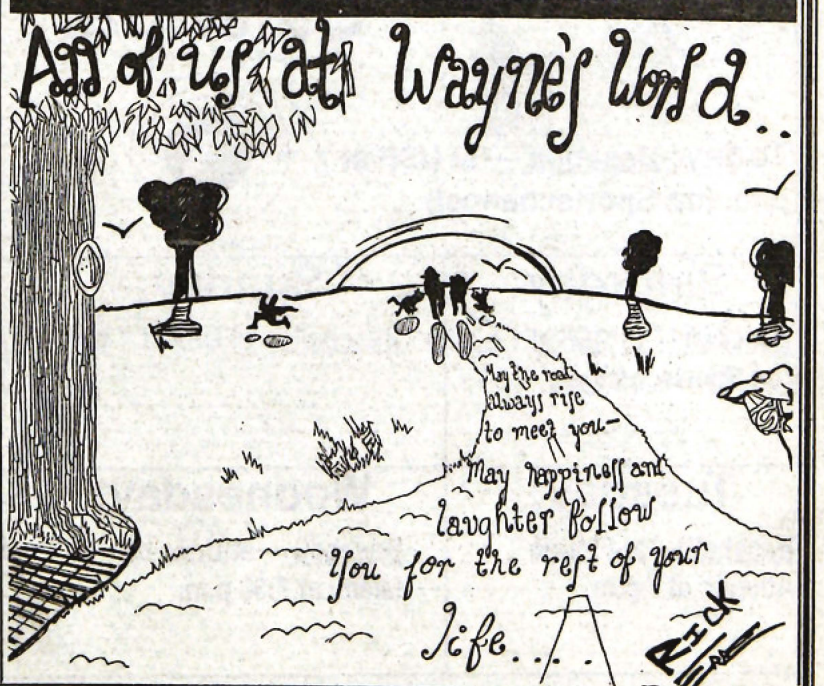 All of us at Wayne's World...
May the road
always rise
to meet you—
May happiness and
laughter follow
you for the rest of your
life.....
RICK